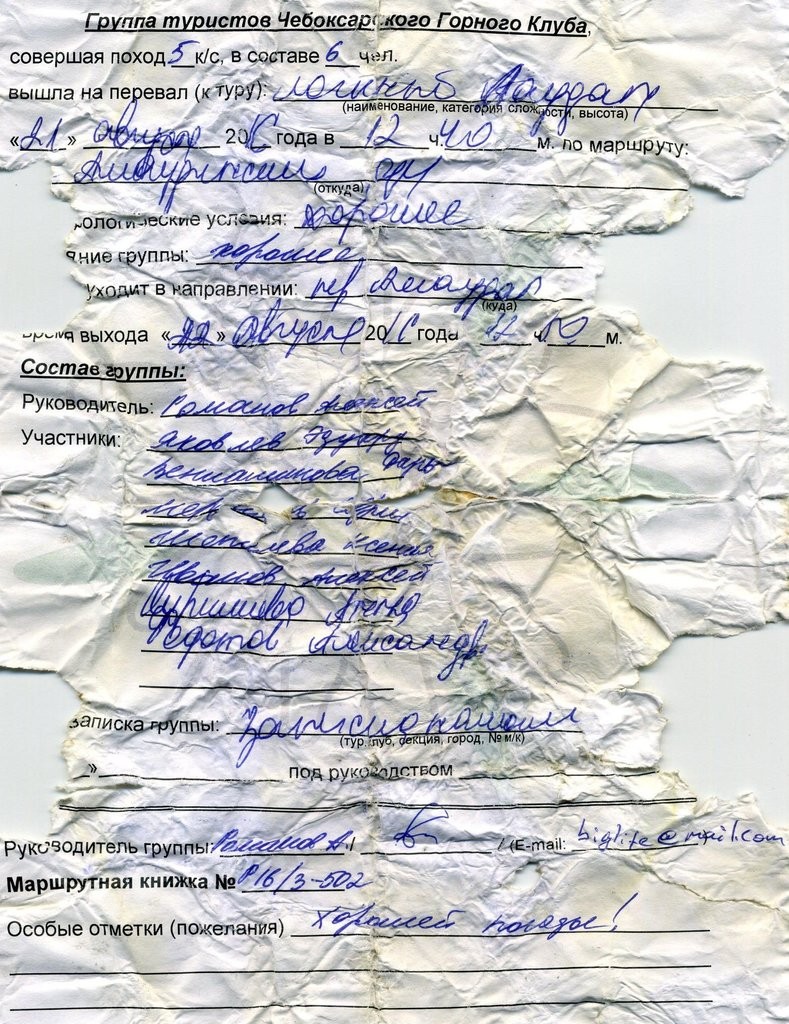 Группа туристов Чебоксарского Горного Клуба,
совершая поход 5 к/с, в составе 6 чел.
вышла на перевал (к туру): ложный
(наименование, категория сложности, высота)
«21» августа 2016 года в 12 ч. 40 м. по маршруту:
(откуда)
ологические условия: хорошее
яние группы: хорошее
уходит в направлении: пер
(куда)
время выхода «22» августа 2016 года 12 ч. 50 м.
Состав группы:
Руководитель: Романов Алексей
Участники: Яковлев Эдуард
Вениаминова Дарья
Шоглева Ксения
Иванов Алексей
Федотов Александр
записка группы:
(тур. луб, секция, город, № м/к)
» под руководством
Руководитель группы: Романов А. / / (E-mail: biglife@mail.com
Маршрутная книжка № Р16/3-502
Особые отметки (пожелания) Хорошей погоды!